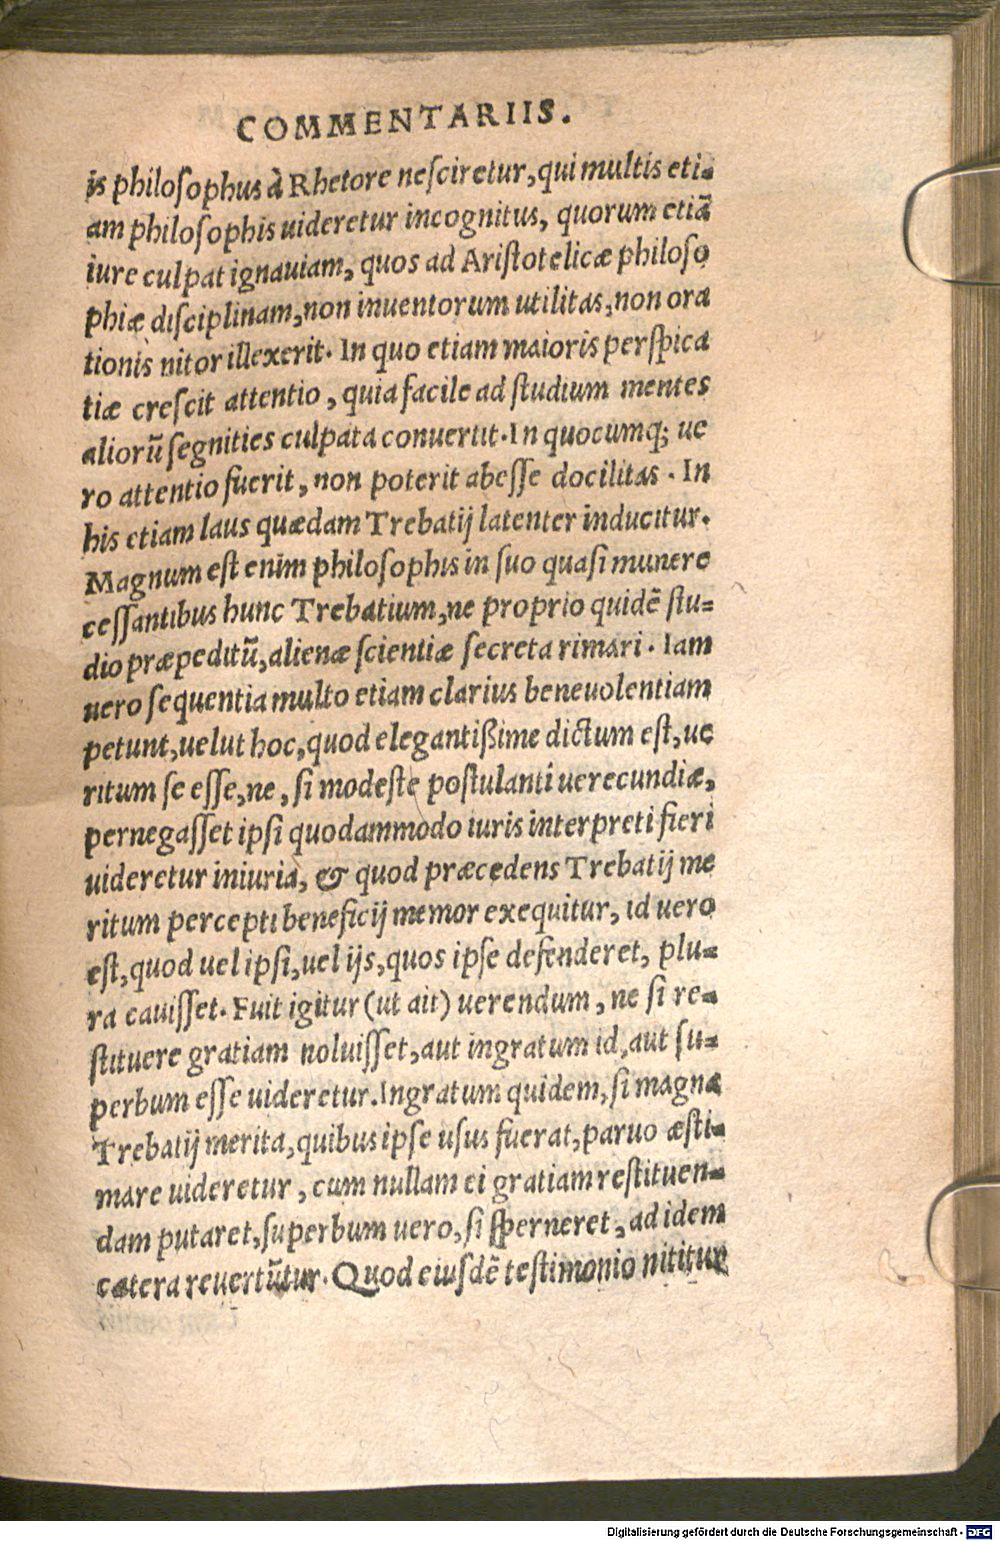 COMMENTARIIS.
is philosophus à Rhetore nesciretur, qui multis eti-
am philosophis uideretur incognitus, quorum etiã
iure culpat ignauiam, quos ad Aristotelicæ philoso
phiæ disciplinam, non inuentorum utilitas, non ora
tionis nitor illexerit. In quo etiam maioris perspica
tiæ crescit attentio, quia facile ad studium mentes
aliorũ segnities culpata conuertit. In quocumq; ue
ro attentio fuerit, non poterit abesse docilitas. In
his etiam laus quædam Trebatij latenter inducitur.
Magnum est enim philosophis in suo quasi munere
cessantibus hunc Trebatium, ne proprio quidẽ stu-
dio præpeditũ, alienæ scientiæ secreta rimari. Iam
uero sequentia multo etiam clarius beneuolentiam
petunt, uelut hoc, quod elegantißime dictum est, ue
ritum se esse, ne, si modeste postulanti uerecundiæ,
pernegasset ipsi quodammodo iuris interpreti fieri
uideretur iniuria, & quod præcedens Trebatij me
ritum percepti beneficij memor exequitur, id uero
est, quod uel ipsi, uel ijs, quos ipse defenderet, plu-
ra cauisset. Fuit igitur (ut ait) uerendum, ne si re-
stituere gratiam noluisset, aut ingratum id, aut su-
perbum esse uideretur. Ingratum quidem, si magna
Trebatij merita, quibus ipse usus fuerat, paruo æsti-
mare uideretur, cum nullam ei gratiam restituen-
dam putaret, superbum uero, si sperneret, ad idem
cætera reuertũtur. Quod eiusdẽ testimonio nititur
Digitalisierung gefördert durch die Deutsche Forschungsgemeinschaft - DFG